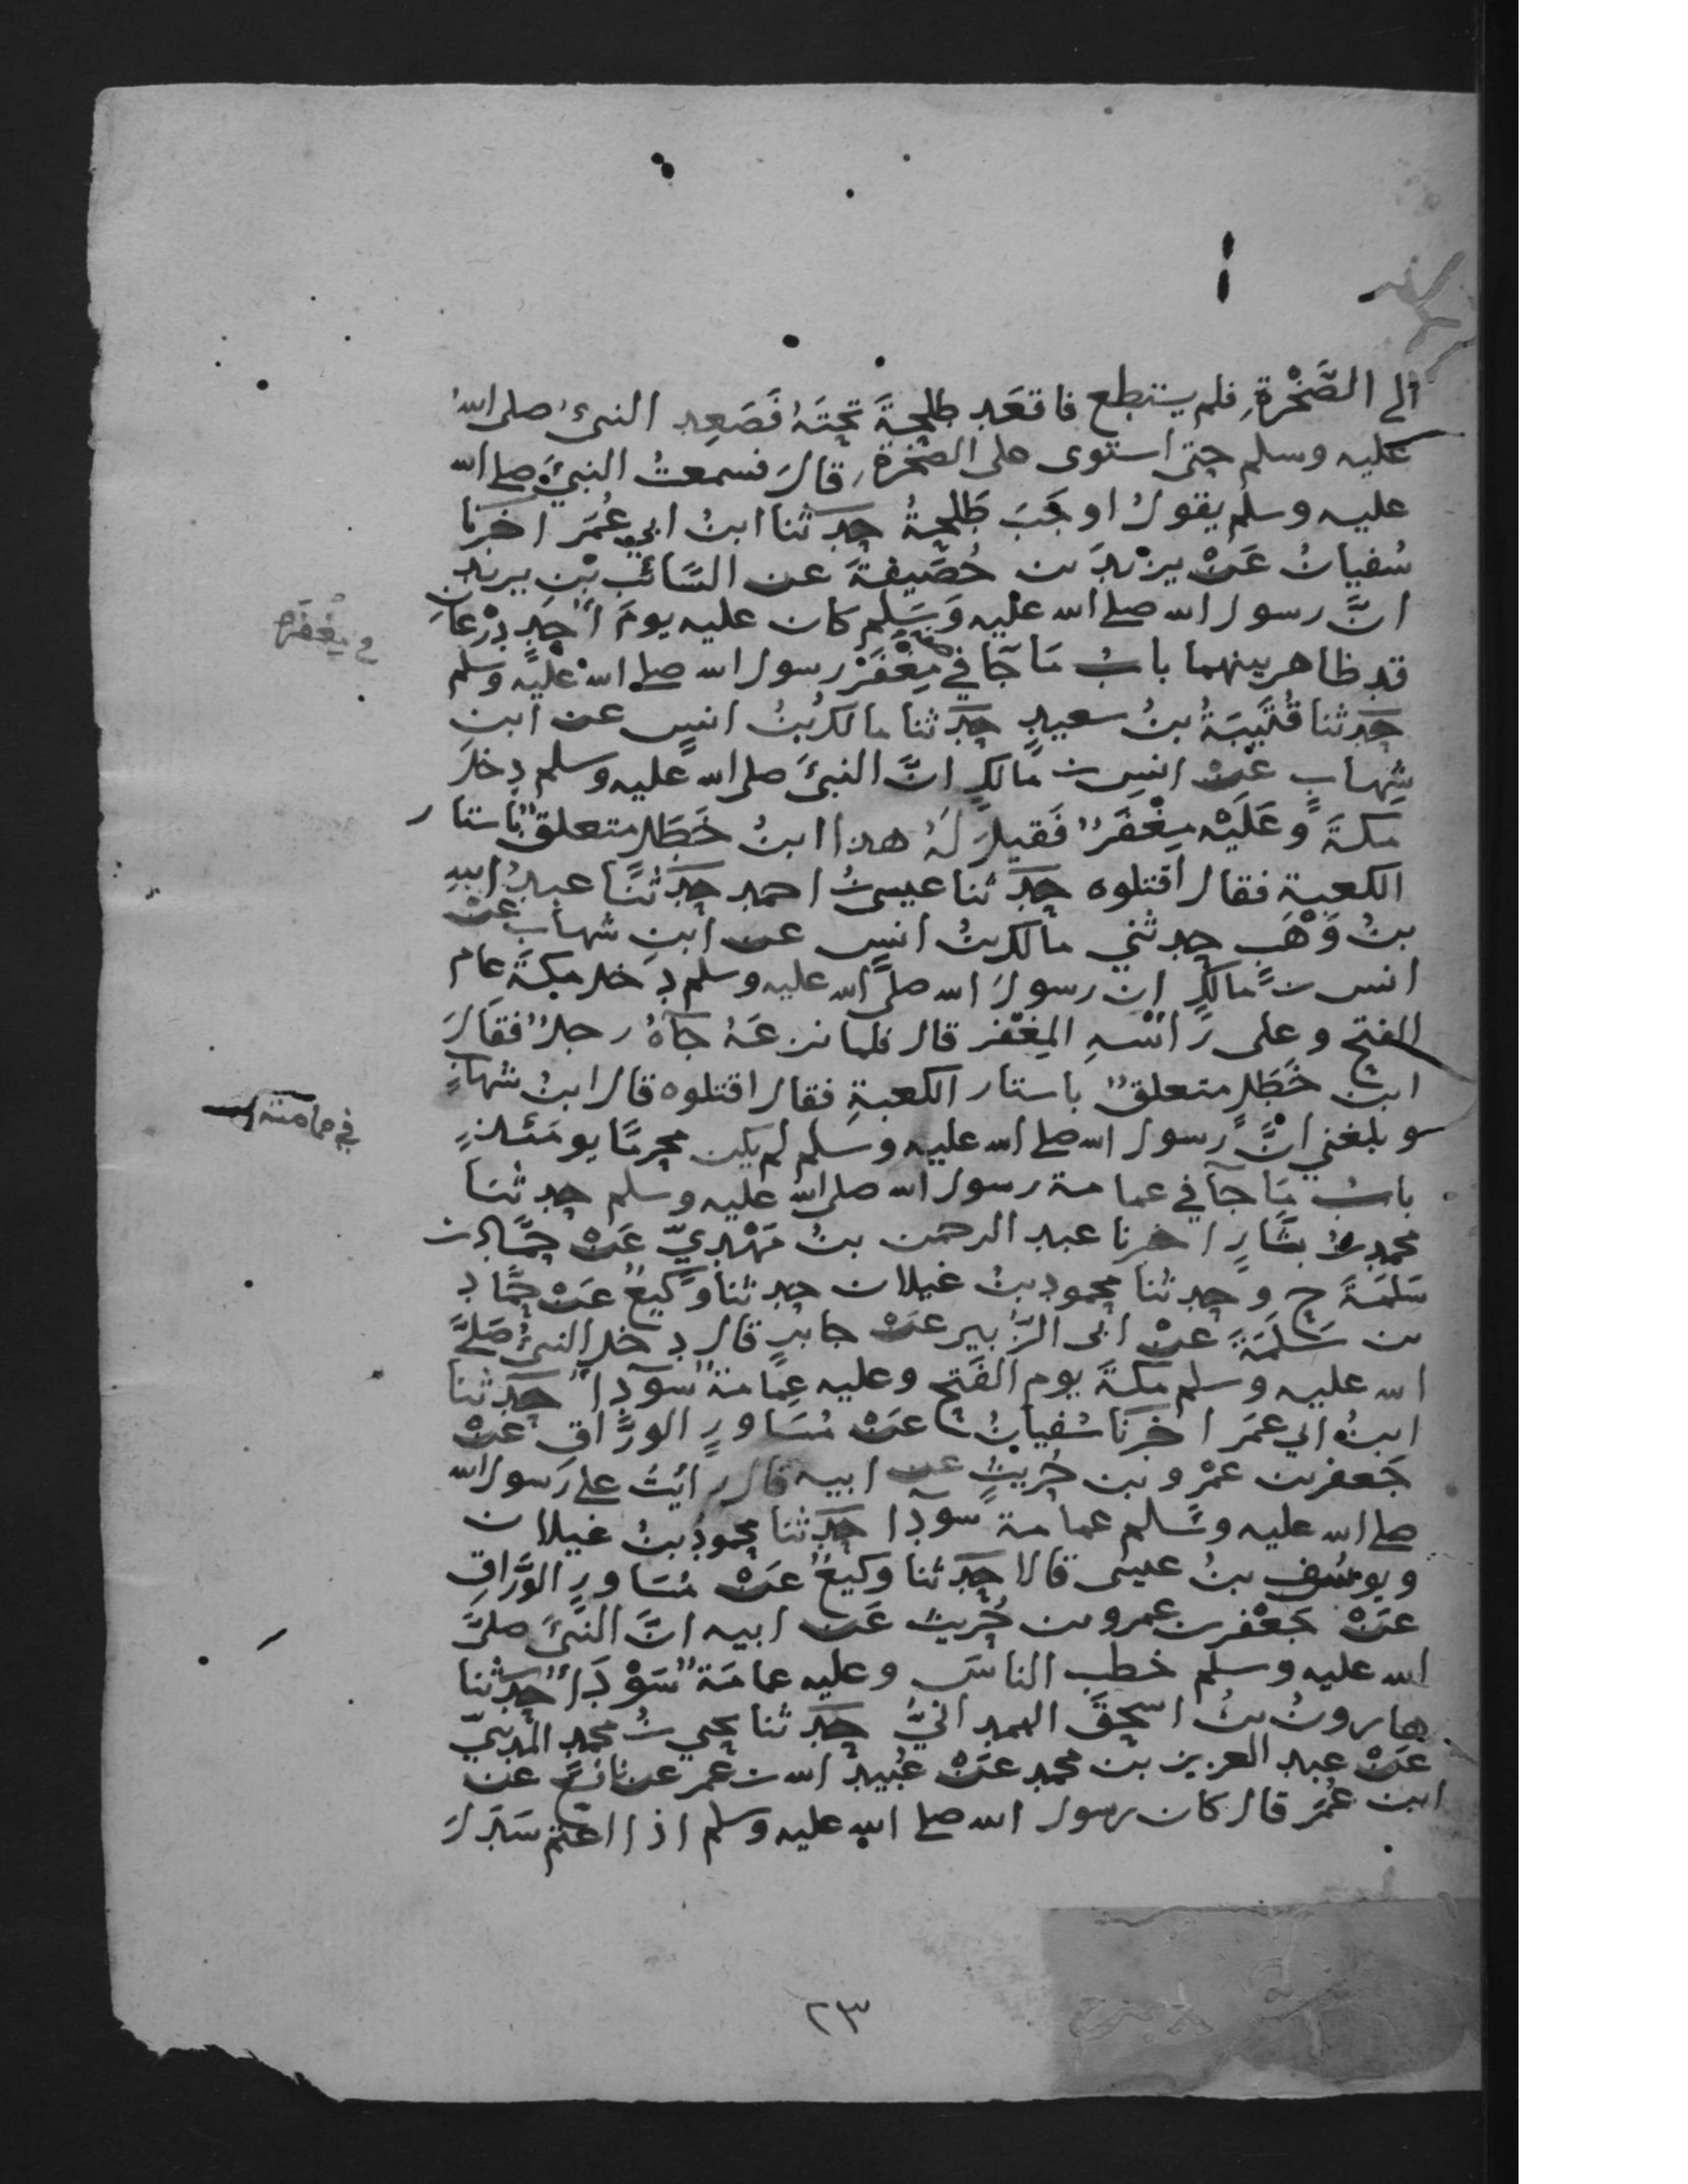 الى الصَّخْرةِ فلم يستطع فاقعَد طلحةَ تحتَهُ فَصَعِد النبيُ صلى اللهُ
عليه وسلم حتى استوى على الصخرة قالَ فسمعتُ النبيَّ صلى الله
عليه وسلم يقولُ اوجَبَ طَلحةُ حدثنا ابنُ ابي عُمَر اخبَرنا
سُفيانُ عَنْ يزْيدَ بن خُصَيفةَ عن السَّائبِ بْنِ يزيد
انَّ رسول الله صلى الله عليه وَسَلم كان عليه يومَ اُحُدٍ دِرْعَانِ
في مِغْفَرِه
قد ظاهر بينهما بابُ مَا جَآ في مِغْفَرْ رسول الله صلى الله عليه وسلم
حَدثنا قُتَيبَةُ بنُ سعيدٍ حَدثنا مالكُ بنُ انسٍ عن ابنِ
شِهابٍ عَنْ انسِ بن مَالكٍ انَّ النبيَّ صلى الله عليه وسلم دخلَ
مَكةَ وَعَلَيْه مِغْفَرٌ فَقيلَ لَهُ هذا ابنُ خَطَلٍ متعلقٌ باستار
الكعبة فقال اقتلوه حَدثنا عيسى بنُ احمد حَدثنا عبدُ اللهِ
بنُ وَهْبٍ حدثني مالك بنُ انسٍ عن ابنِ شهابٍ عَنْ
انس بن مَالكٍ ان رسولَ الله صلى الله عليه وسلم دخل مكةَ عام
الفتح وعلى رَأسْهِ المِغْفر قال فلما نزعَهُ جآهُ رجلٌ فقالَ
ابنُ خَطَلٍ متعلقٌ باستار الكعبةِ فقال اقتلوه قال ابنُ شهابٍ
وبلغني انَّ رسول الله صلى الله عليه وسلم لم يكن محرِمًا يومَئذٍ
في عمامته
بابُ مَا جآ في عمامة رسول الله صلى الله عليه وسلم حدثنا
محمد بنُ بشَّارٍ اخبرنا عبد الرحمن بنُ مَهْدِيٍّ عَنْ حَمَّادِ بن
سَلمَةَ ح وحدثنا محمود بنُ غيلان حدثنا وَكيعٌ عَنْ حمَّاد
بن سَلَمَةَ عَنْ ابي الزُّبير عَنْ جابرٍ قال دخل النبيُّ صَلىَّ
الله عليه وسلم مَكةَ يوم الفَتح وعليه عِمَامَةٌ سَوْدآ حَدثنا
ابنُ ابي عمَر اخبرَنا سُفيانُ عَنْ مُسَاورٍ الورَّاق عَنْ
جَعفر بن عمْرو بن حُريثٍ عن ابيه قال رايتُ على رَسول الله
صلى الله عليه وسَلم عمامة سودآ حَدثنا محمودُ بنُ غيلان
ويوسُف بنُ عيسى قالا حَدثنا وكيعٌ عَنْ مُسَاورِ الوَّرَاقِ
عَنْ جَعْفر بن عمرو بن حُريث عَن ابيه انَّ النَّبيَّ صلىَّ
الله عليه وسلم خطب الناسَ وعليه عمامَةٌ سَوْدَآ حَدثنا
هارونُ بنُ اسحقَ الهمدانيُّ حَدثنا يحيى بنُ محمد المدنيّ
عَنْ عبد العزيز بن محمد عَنْ عُبيد الله بن عُمر عن نافعٍ عن
ابن عُمَر قال كان رسول الله صلى الله عليه وسلم اذا اعتم سَدَلَ
٢٣